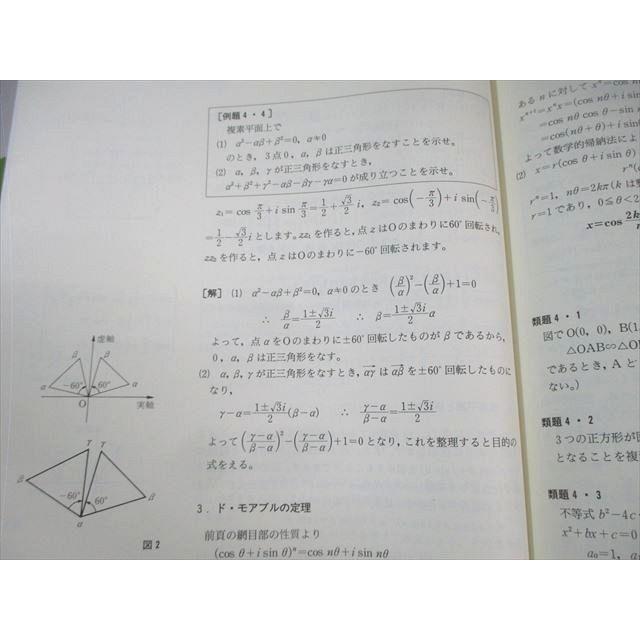 [例題4・4]
複素平面上で
(1) α²−αβ+β²=0, α≠0
のとき, 3点0, α, βは正三角形をなすことを示せ。
(2) α, β, γが正三角形をなすとき,
α²+β²+γ²−αβ−βγ−γα=0が成り立つことを示せ。
z₁=cos π/3+i sin π/3=1/2+√3/2 i, z₂=cos(−π/3)+i sin(−π/3)
=1/2−√3/2 iとします。zz₁を作ると, 点zはOのまわりに60°回転され,
zz₂を作ると, 点zはOのまわりに−60°回転されます。
[解] (1) α²−αβ+β²=0, α≠0のとき (β/α)²−(β/α)+1=0
∴ β/α=(1±√3i)/2 ∴ β=(1±√3i)/2 α
よって, 点αをOのまわりに±60°回転したものがβであるから,
0, α, βは正三角形をなす。
(2) α, β, γが正三角形をなすとき, αγ→はαβ→を±60°回転したものに
なり,
γ−α=(1±√3i)/2 (β−α) ∴ (γ−α)/(β−α)=(1±√3i)/2
よって((γ−α)/(β−α))²−((γ−α)/(β−α))+1=0となり, これを整理すると目的の
式をえる。
3. ド・モアブルの定理
前頁の網目部の性質より
(cos θ+i sin θ)ⁿ=cos nθ+i sin nθ
虚軸
β β
α −60° 60° α
O 実軸
γ γ
β −60° 60° β
α
図2
あるnに対して xⁿ=cos
xⁿ⁺¹=xⁿx=(cos nθ+i sin
=cos nθ cos θ−sin
=cos(nθ+θ)+i sin
よって数学的帰納法によ
(2) x=r(cos θ+i sin θ)
rⁿ(
rⁿ=1, nθ=2kπ(kは
r=1であり, 0≦θ<2
x=cos 2k
類題4・1
図でO(0, 0), B(1
△OAB∽△O
であるとき, Aと
ない。)
類題4・2
3つの正方形が
となることを複
類題4・3
不等式 b²−4c
x²+bx+c=0
a₀=1, a